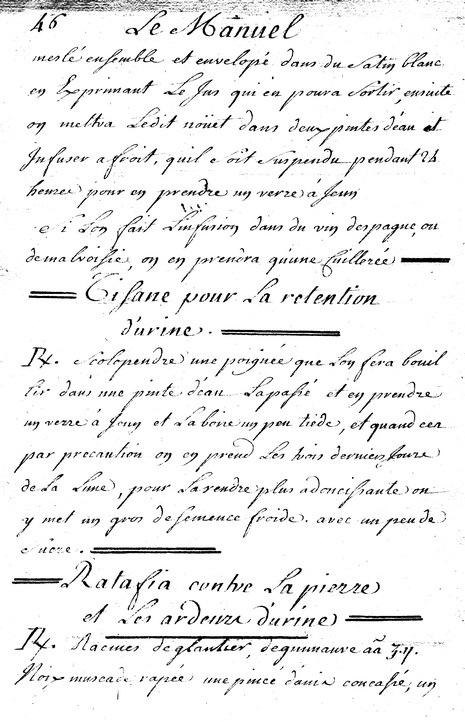 46 Le Manuel
meslé ensemble et envelopé dans du Satin blanc
en Exprimant Le Jus qui en poura Sortir, ensuite
on mettra Ledit noüet dans deux pintes d'eau et
Infuser a froit, quil Soit Suspendu pendant 24
heures pour en prendre un verre à Jeun
Si Lon fait L'infusion dans du vin despagne, ou
de malvoisie, on en prendra qu'une Cuillerée
Tisane pour La retention
d'urine.
℞. Scolopendre une poignée que Lon fera bouil
lir dans une pinte d'eau Lapassé et en prendre
un verre à Jeun et La boire un peu tiède, et quand cest
par precaution on en prend Les trois derniers Jours
de La Lune, pour La rendre plus adoucissante on
y met un gros de Semence froide. avec un peu de
Sucre.
Ratafia contre La pierre
et Les ardeurs d'urine
℞. Racines deglantier, deguimauve aã ℥.ij.
Noix muscade rapée une pincé d'anis concassé, un